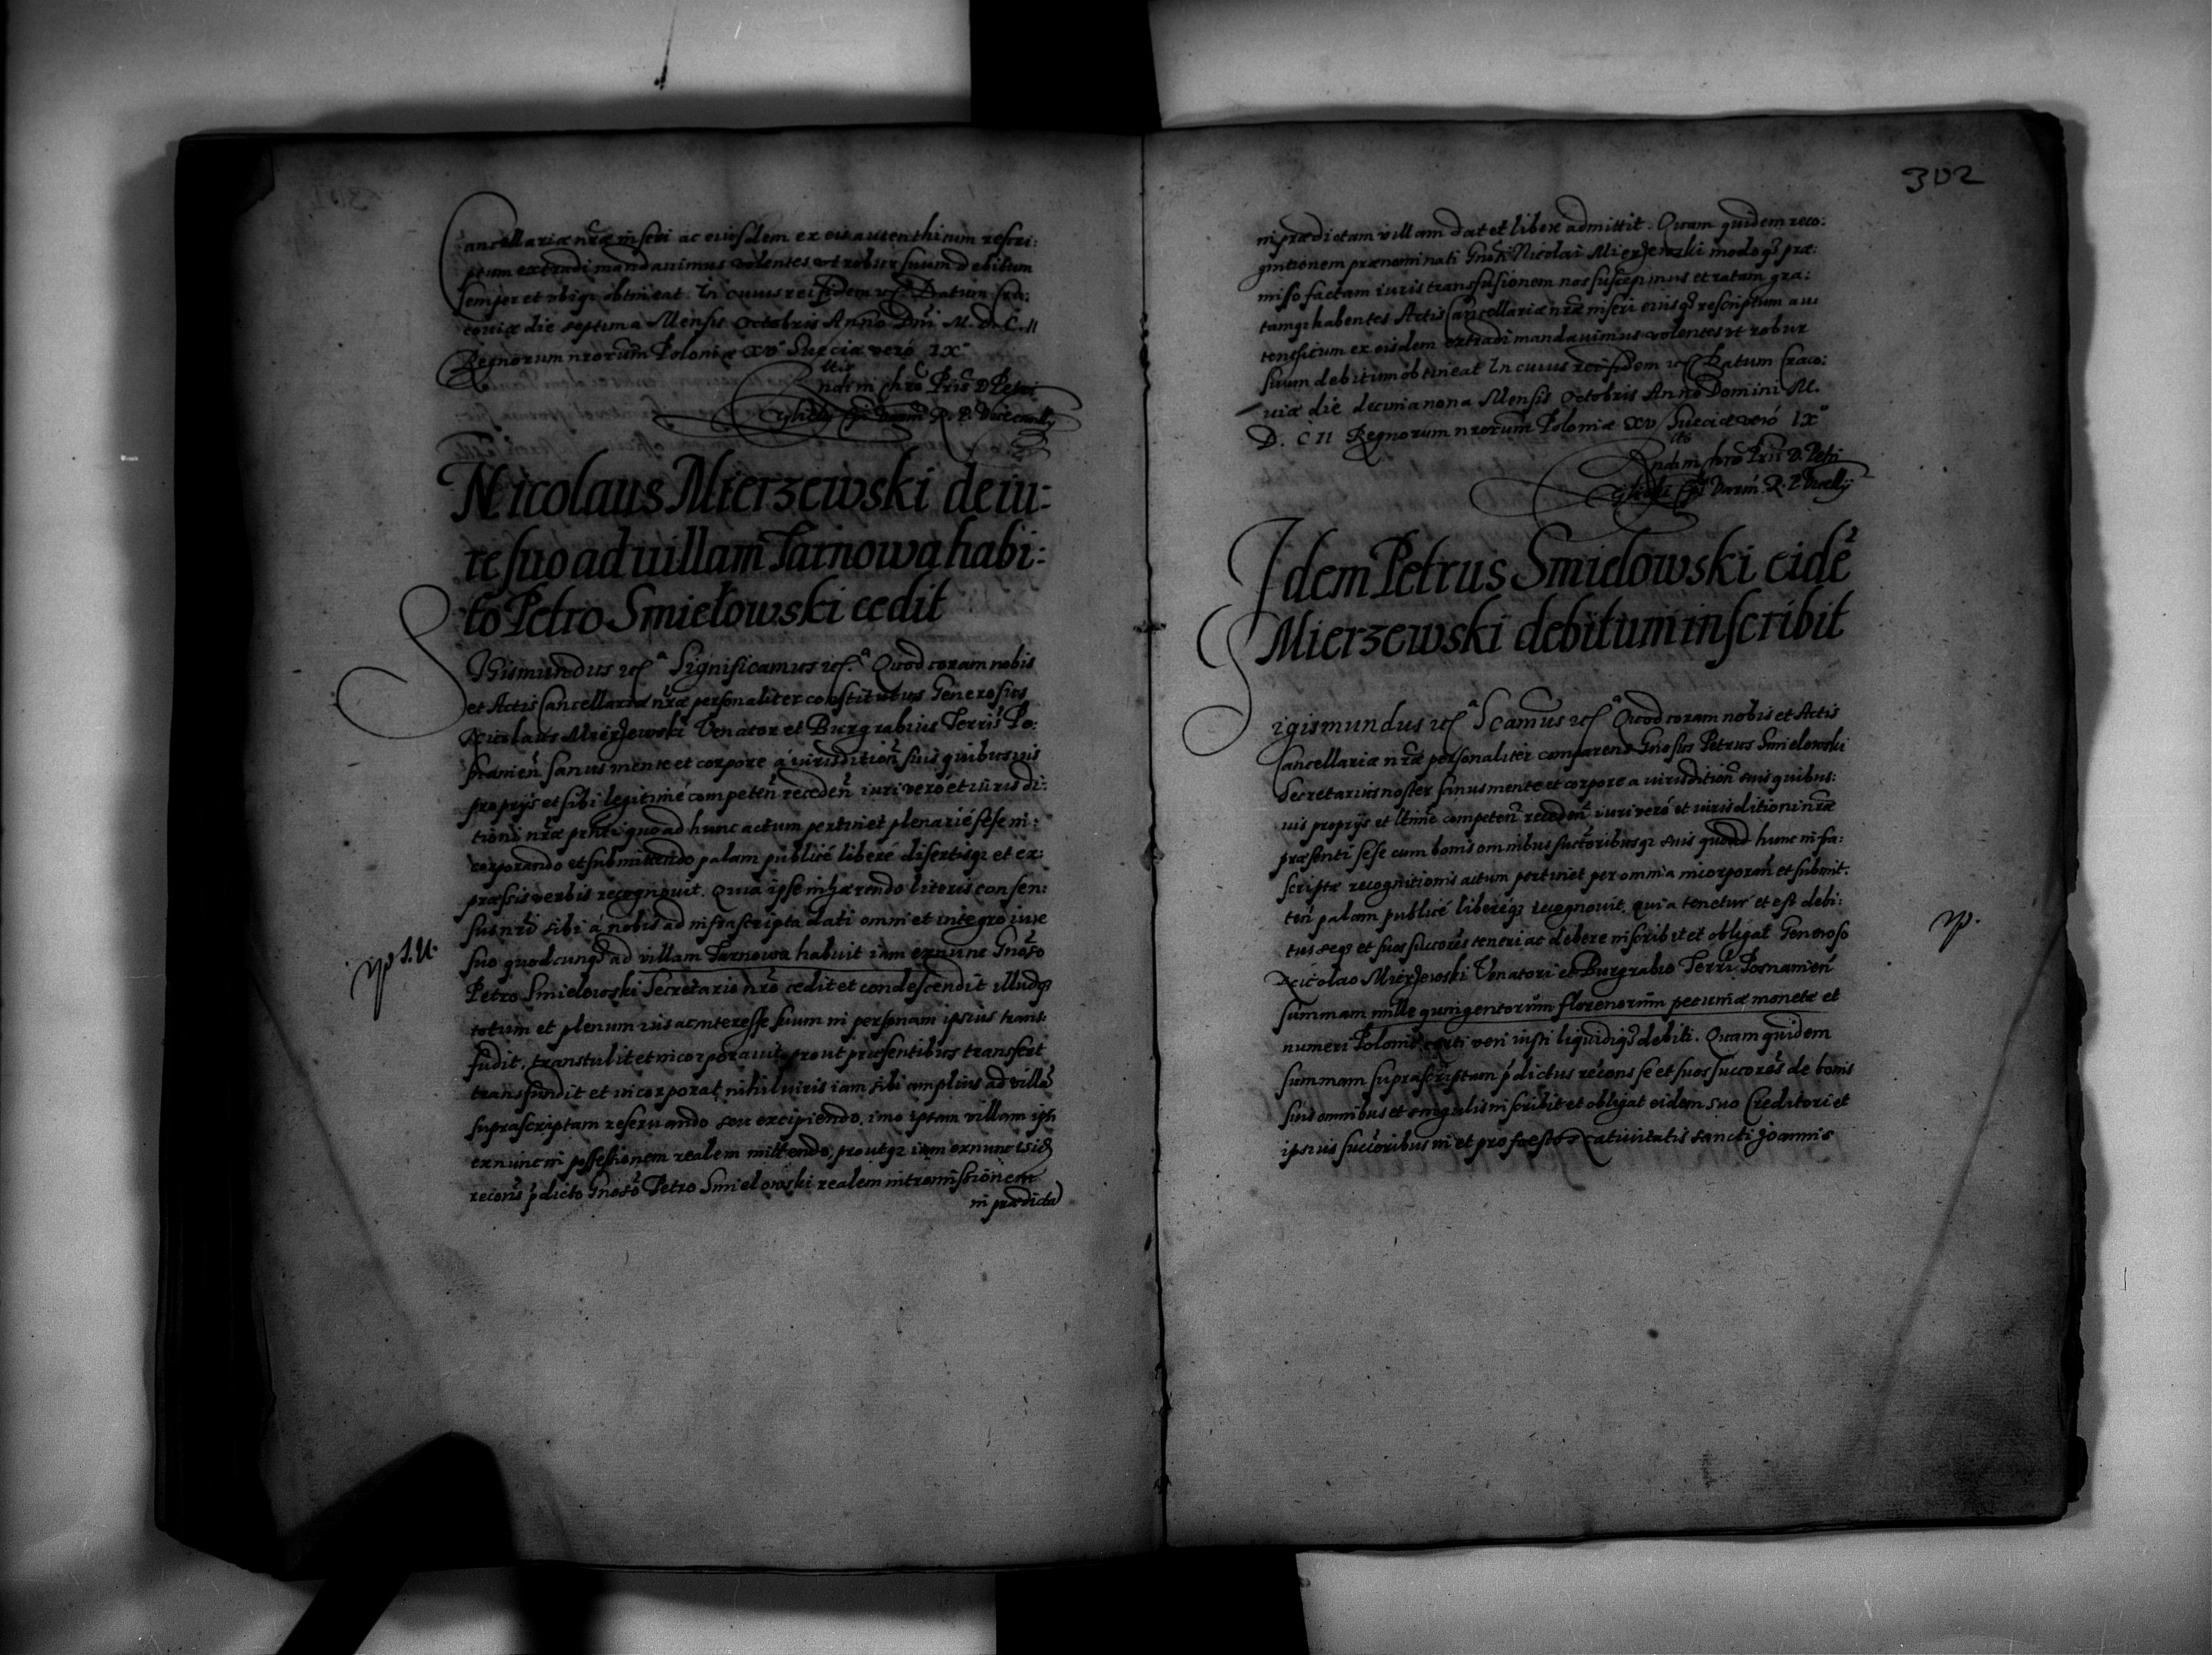 Cancellariæ nr̃æ inseri ac eiusdem ex eis autenthicum rescri:
ptum extradi mandauimus volentes vt robur suum debitum
semper et vbiq₃ obtineat. In cuius rei fidem etc. Datum Cra:
couiæ die septima Mensis Octobris Anno Dni M. D. C. II
Regnorum nrorum Poloniæ XV Sueciæ veró IX°
Rndi in chro Pris D Petri
Tylicki R. P. Vicecancellarij
Nicolaus Mierzewski de iu:
re suo ad uillam Tarnowa habi:
to Petro Smiełowski cedit
Sigismundus etc.ª Significamus etc.ª Quod coram nobis
et Actis Cancellariæ nr̃æ personaliter constitutus Generosus
Nicolaus Mierzewski Venator et Burgrabius Terris Po:
snanien̄ sanus mente et corpore á iurisdition̄ suis quibusuis
proprijs et sibi legitimé competen̄ receden̄ iuri veró et iurisdi:
tioni nr̃æ pn̄ti quo ad hunc actum pertinet plenarié sese in:
corporando et submittendo palam publicé liberé disertisq₃ et ex:
præssis verbis recognouit. Quia ipse inhærendo literis consen:
sus nr̃i sibi á nobis ad infrascripta dati omni et integro iure
suo quodcunq₃ ad villam Tarnowa habuit iam exnunc Gnoso
Petro Smielowski Secretario nr̃o cedit et condescendit illudq₃
totum et plenum ius ac interesse suum in personam ipsius trans:
fudit, transtulit et incorporauit prout præsentibus transfert
transfundit et incorporat nihil iuris iam sibi amplius ad villā
suprascriptam reseruando seu excipiendo, imo ipsam villam ipsi
exnunc in possessionem realem mittendo, proutq₃ iam exnunc
recon̄s p̄dicto Gnoso Petro Smielowski realem intromissionem
in prædictā
302
in prædictam villam dat et liberé admittit. Quam quidem reco:
gnitionem prænominati Gnosi Nicolai Mierzewski modoq₃ præ:
misso factam iuris transfusionem nos suscepimus et ratam gra:
tamq₃ habentes Actis Cancellariæ nr̃æ inseri eiusq₃ rescriptum au
tenticum ex eisdem extradi mandauimus volentes vt robur
suum debitum obtineat In cuius rei fidem etc Datum Craco:
uiæ die decima nona Mensis Octobris Anno Domini M.
D. C II Regnorum nrorum Poloniæ XV Sueciæ veró IX°
Rndi in chro Pris D. Petri
Tylicki R. P. Vicecellarij
Idem Petrus Smielowski eidē
Mierzewski debitum inscribit
Sigismundus etc.ª Scamus etc.ª Quod coram nobis et Actis
Cancellariæ nr̃æ personaliter comparens Gnosus Petrus Smielowski
Secretarius noster sanus mente et corpore a iurisdition̄ suis quibus:
uis proprijs et ltimé competen̄ receden̄ iuri veró et iurisditioni nr̃æ
præsenti sese cum bonis omnibus succoribusq₃ suis quoad hunc infra:
scriptæ recognitionis actum pertinet per omnia incorporan̄ et submit:
ten̄ palam publicé liberéq₃ recognouit, quia tenetur et est debi:
tus seq₃ et suos succores teneri ac debere inscribit et obligat Generoso
Nicolao Mierzewski Venatori et Burgrabio Terri Posnanien̄
summam mille quingentorum florenorum pecuniæ monetæ et
numeri Polonic. certi veri iusti liquidiq₃ debiti. Quam quidem
summam suprascriptam p̄dictus recons se et suos succores de bonis
suis omnibus et singulis inscribit et obligat eidem suo Creditori et
ipsius succoribus in et pro festo Natiuitatis Sancti Joannis